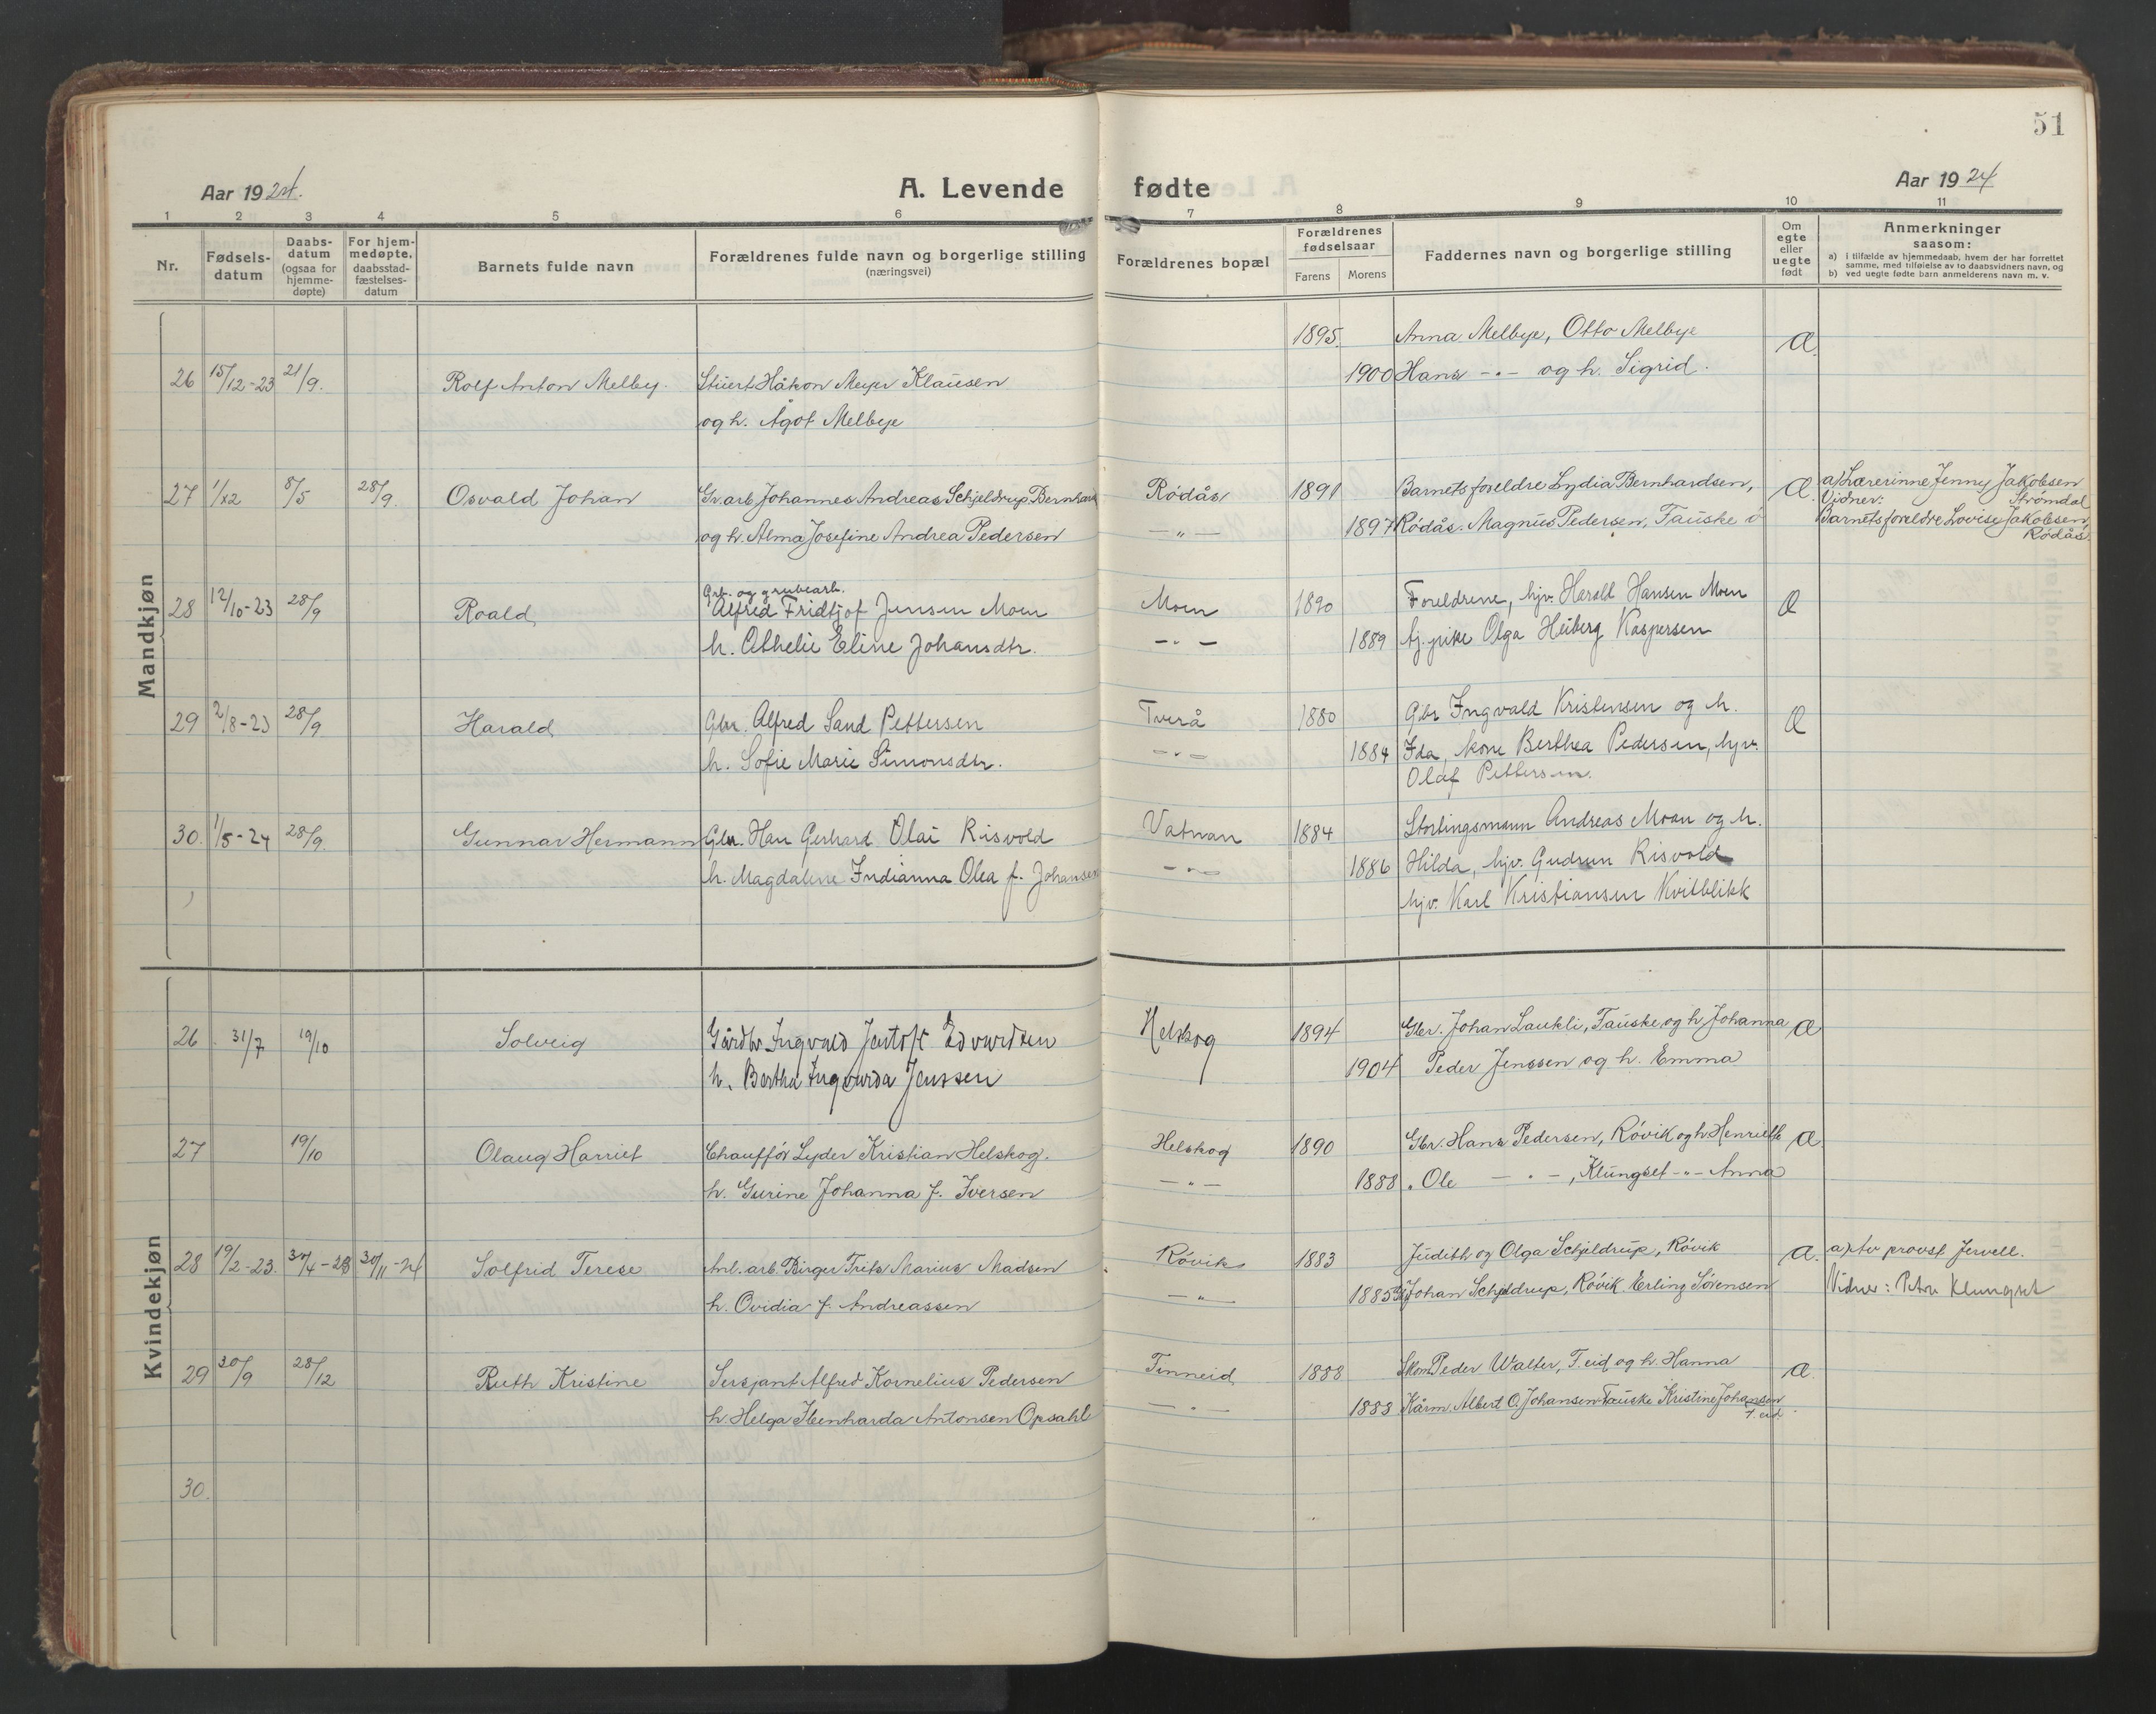 51
Aar 1924.
A. Levende fødte
Aar 1924
1 2 3 4 5 6 7 8 9 10 11
Nr.
Fødsels-
datum
Daabs-
datum
(ogsaa for
hjemme-
døpte)
For hjem-
medøpte,
daabsstad-
fæstelses-
datum
Barnets fulde navn
Forældrenes fulde navn og borgerlige stilling
(næringsvei)
Forældrenes bopæl
Forældrenes
fødselsaar
Farens Morens
Faddernes navn og borgerlige stilling
Om
egte
eller
uegte
født
Anmerkninger
saasom:
a) i tilfælde av hjemmedaab, hvem der har forrettet
samme, med tilføielse av to daabsvidners navn, og
b) ved uegte fødte barn anmelderens navn m. v.
Mandkjøn
1895. Anna Melbye, Otto Melbye Æ.
26 15/12-23 21/9. Rolf Anton Melby. Stuert Håkon Meyer Klausen 1900 Hans -"- og h. Sigrid.
og h. Ågot Melbye
27 1/12 8/5 28/9 Osvald Johan Gr.arb Johannes Andreas Schjeldrup Bernhard Rødås 1891 Barnets foreldre Lydia Bernhardsen, Æ. a) Lærerinne Jenny Jakobsen
Strømdal
Vidner:
og h. Alma Josefine Andrea Pedersen -"- 1897 Rødås. Magnus Pedersen, Fauske Barnets foreldre Lovise Jakobsen,
Rødås.
28 12/10-23 28/9 Roald Grb. og grubearb.
Alfred Fridtjof Jensen Moen Moen 1890 Foreldrene, hjv. Harald Hansen Moen Æ
h. Athelie Eline Johansdtr. -"- 1889 tj. pike Olga Heiberg Kaspersen
29 2/8-23 28/9 Harald Gbr. Alfred Sand Pettersen Tverå 1880 Gbr Ingvald Kristensen og h. Æ
h. Sofie Marie Simonsdtr. -"- 1884 Ida, kone Berthea Pedersen, hjv.
Olaf Pettersen.
30. 1/5-24 28/9. Gunnar Hermann Gbr. Han Gerhard Olai Risvold Vatnan 1884 Stortingsmann Andreas Moan og h.
h. Magdalene Indianna Olea f. Johansen -"- 1886 Hilda, hjv. Gudrun Risvold
hjv. Karl Kristiansen Kvitblikk
Kvindekjøn
26 31/7 19/10 Solveig Gårdbr Ingvald Jentoft Edvardsen Helskog 1894 Gbr. Johan Laukli, Fauske og h Johanna Æ
h. Bertha Ingvarda Jenssen 1904 Peder Jenssen og h. Emma
27 19/10 Olaug Harriet Chauffór Lyder Kristian Helskog. Helskog 1890 Gbr. Hans Pedersen, Róvik og h Henriette Æ
h. Gurine Johanna f. Iversen -"- 1888 . Ole -"-, Klungset -"- Anna
28 19/2-23. /4-23 30/11-24 Solfrid Terese Anl. arb. Birger Frits Marius Madsen Róvik 1883 Judith og Olga Schjeldrup, Róvik Æ. a) Av provst Jervell.
h. Ovidia f. Andreassen -"- 1885 Johan Schjeldrup, Róvik. Erling Sórensen Vidner: Petra Klungset
29 30/9 28/12 Ruth Kristine Sersjant Alfred Kornelius Pedersen Finneid 1888 Skom. Peder Walter, F.eid og h. Hanna Æ.
h. Helga Ibenharda Antonsen Opsahl -"- 1883 Kårm. Albert O. Johansen Fauske Kristine Johansen
F. eid.
30.